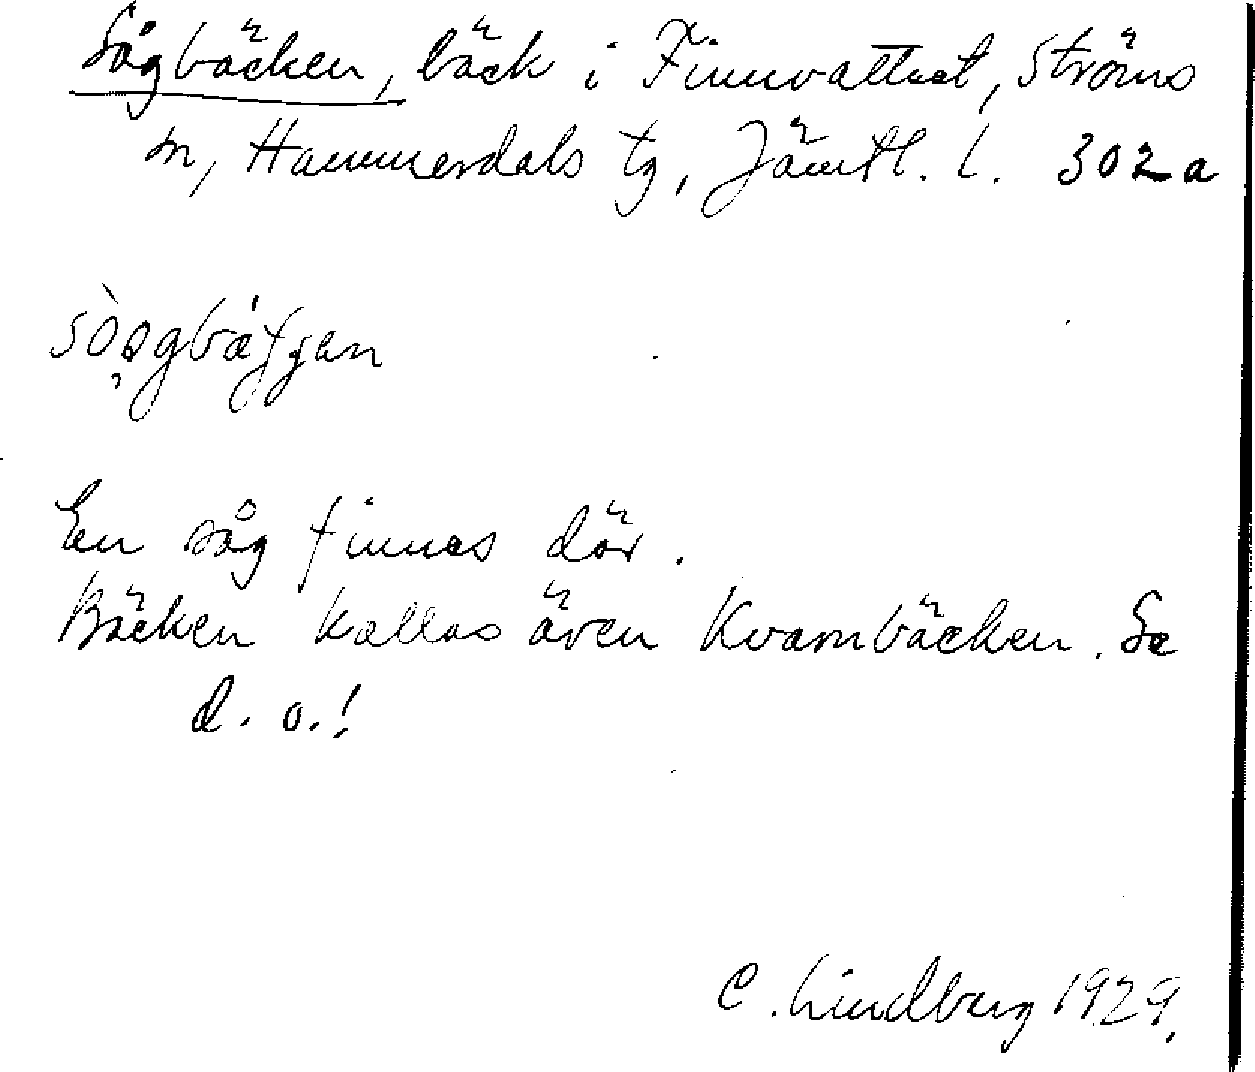 Sågbäcken, bäck i Finnvattnet, Ströms
sn, Hammerdals tg, Jämtl. l. 302a
En såg finnes där.
Bäcken kallas även Kvarnbäcken. Se
d. o.!
C. Lindberg 1929.